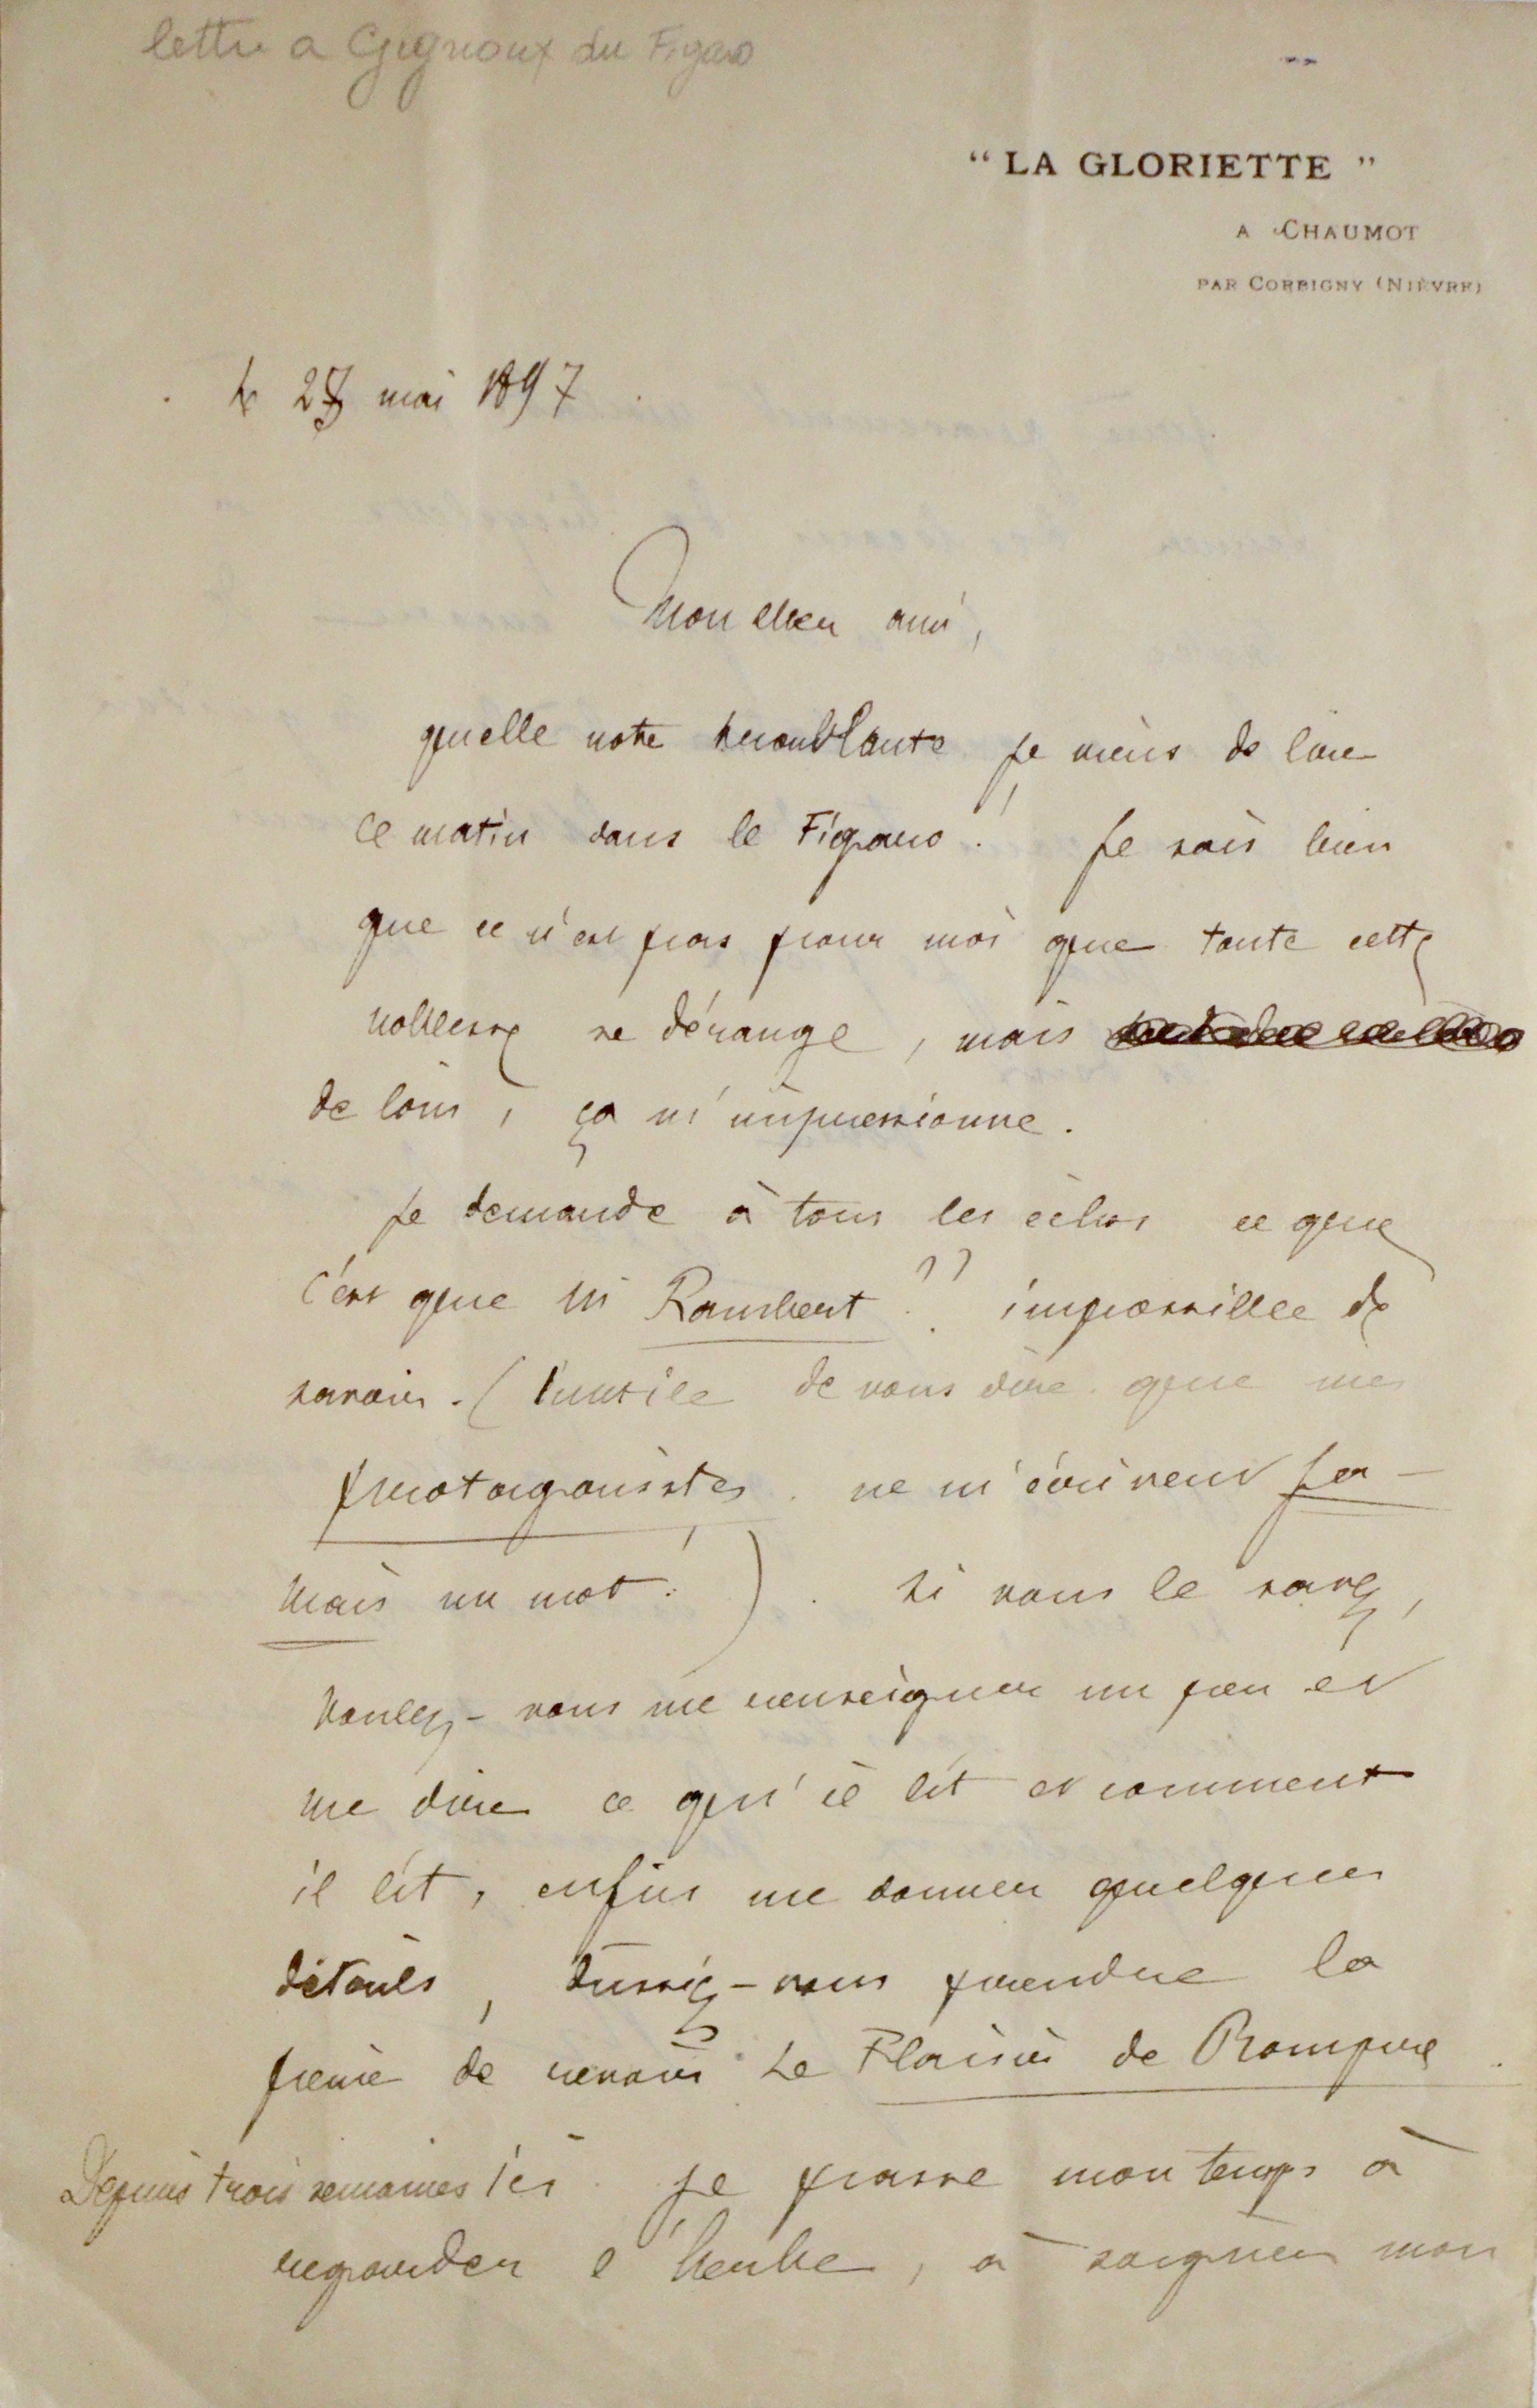 lettre a Gignoux du Figaro
“ LA GLORIETTE ”
A CHAUMOT
PAR CORBIGNY (NIÈVRE)
le 28 mai 1897
Mon cher ami,
quelle note troublante je viens de lire
ce matin dans le Figaro ! Je sais bien
que ce n'est pas pour moi que toute cette
noblesse se dérange, mais
de loin, ça m'impressionne.
Je demande à tous les échos ce que
c'est que M Rambert ?? impossible de
savoir. (Inutile de vous dire que mes
protagonistes ne m'écrivent ja-
mais un mot !). Si vous le savez,
voulez-vous me renseigner un peu et
me dire ce qu'il lit et comment
il lit, enfin me donner quelques
détails, dussiez-vous prendre la
peine de revoir Le Plaisir de Rompre.
Depuis trois semaines ici je passe mon temps à
regarder l'herbe, à soigner mon